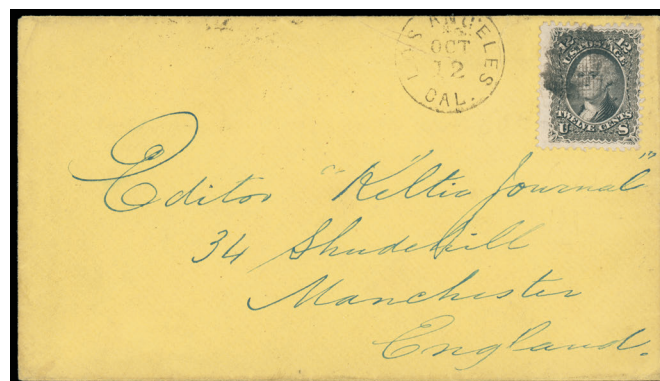 LOS ANGELES
OCT
12
CAL.
12 12
U.S. POSTAGE
TWELVE CENTS
U S
Editor "Keltic Journal"
34 Shudehill
Manchester
England.